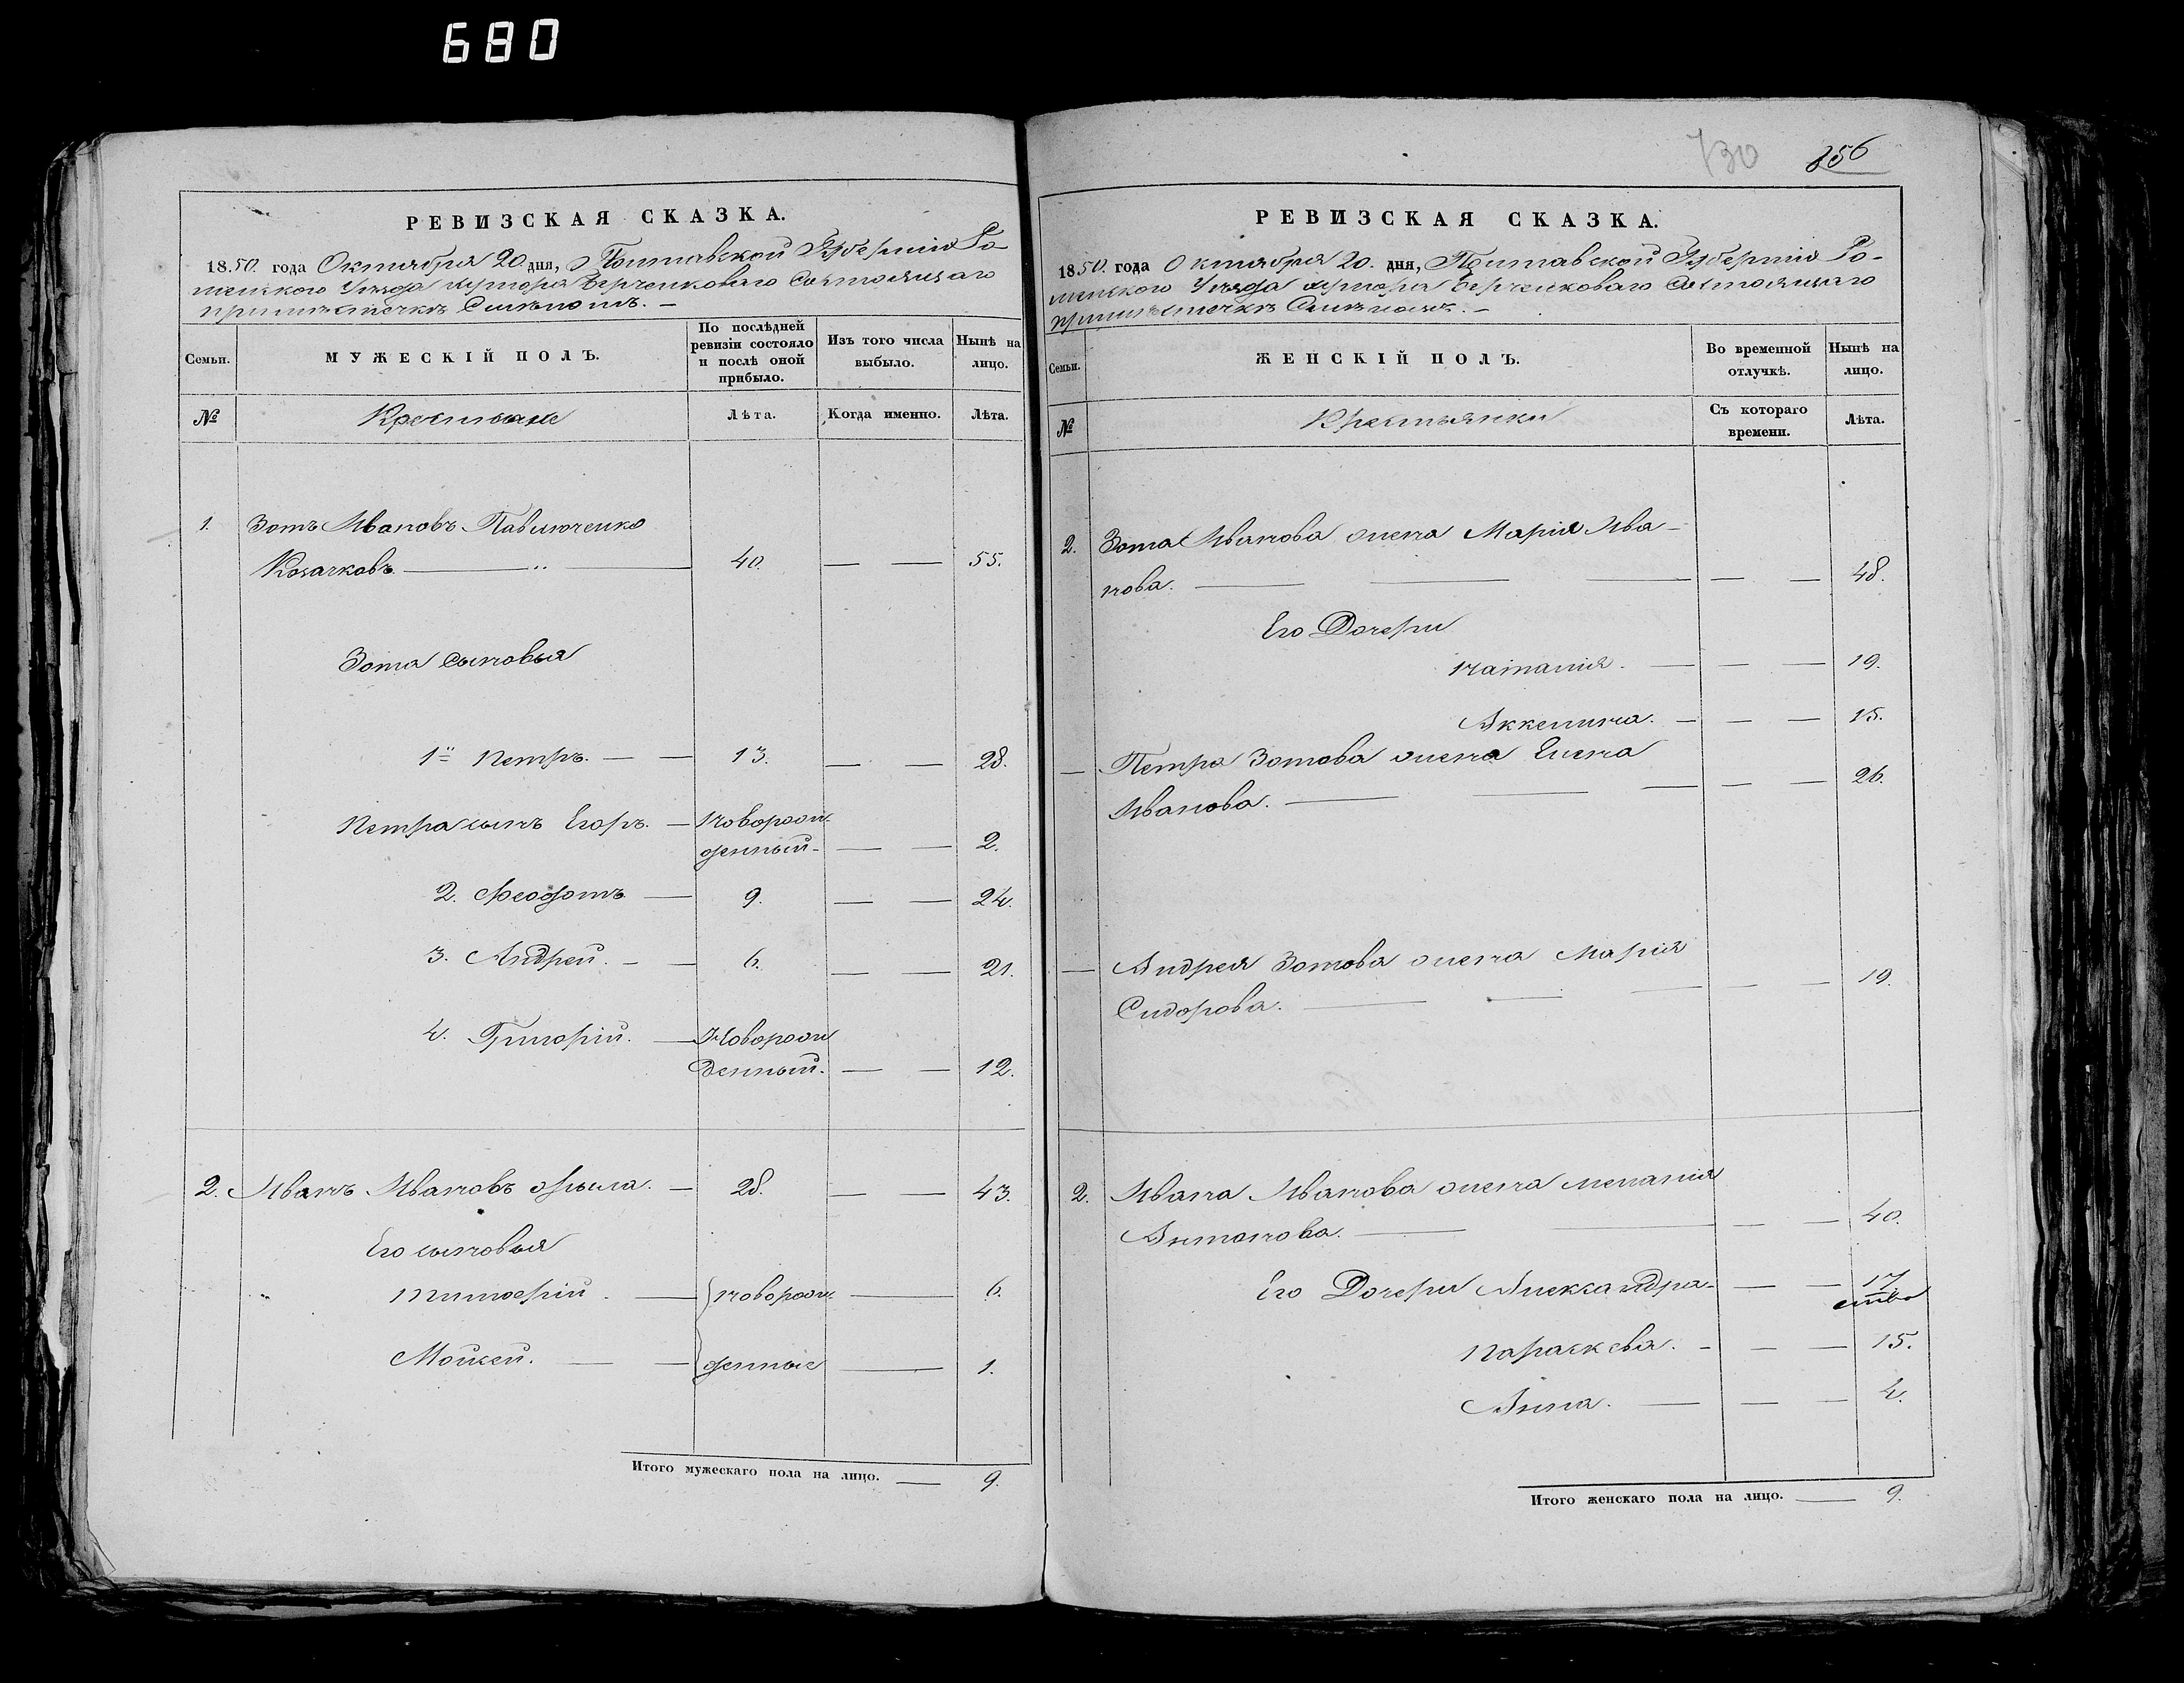 680
РЕВИЗСКАЯ СКАЗКА.
1850. года Октября 20. дня, Полтавской Губерніи Ро-
менского Уѣзда хутора Берченковаго Состоящаго
при мѣстечкѣ Смѣломъ. —
Семьи.
МУЖЕСКІЙ ПОЛЪ.
По послѣдней ревизіи состояло и послѣ оной прибыло.
Изъ того числа выбыло.
Нынѣ на лицо.
№
Крестьяне
Лѣта.
Когда именно.
Лѣта.
1. Зотъ Ивановъ Павлюченко
Козачковъ. 40. — — 55.
Зота сыновья
1й Петръ. — — 13. — — 28.
Петра сынъ Егоръ. — новорож-
денный — — — 2.
2. Феодотъ — 9. — — 24.
3. Андрей. — — 6. — — 21.
4. Григорій. — Новорож
денный. — — 12.
2. Иванъ Ивановъ — 28. — — 43.
Его сыновья
Тимофѣй. — новорож — 6.
Моисей. — — денные — 1.
Итого мужескаго пола на лицо. — 9.
730
856
РЕВИЗСКАЯ СКАЗКА.
1850. года Октября 20. дня, Полтавской Губерніи Ро-
менского Уѣзда хутора Берченковаго Состоящаго
при мѣстечкѣ Смѣломъ. —
Семьи.
ЖЕНСКІЙ ПОЛЪ.
Во временной отлучкѣ.
Нынѣ на лицо.
№
Крестьянки
Съ котораго времени.
Лѣта.
2. Зота Иванова жена Марія Ива-
нова. — — — — — 48.
Его Дочери
Наталія. — — — 19.
Аккелина. — — — 15.
— Петра Зотова жена Елена
Иванова. — — — — — 26.
— Андрея Зотова жена Марія
Сидорова. — — — — — 19.
2. Ивана Иванова жена Меланія
Антонова. — — — — 40.
Его Дочери Александра — — — 17
Параскева. — — — 15.
Анна. — — — 4.
Итого женскаго пола на лицо. — 9.